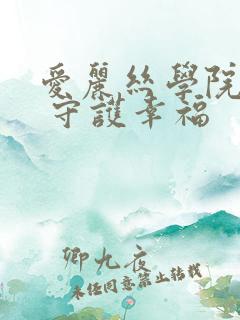 愛麗絲學院
守護幸福
卿九夜
未經同意禁止轉載